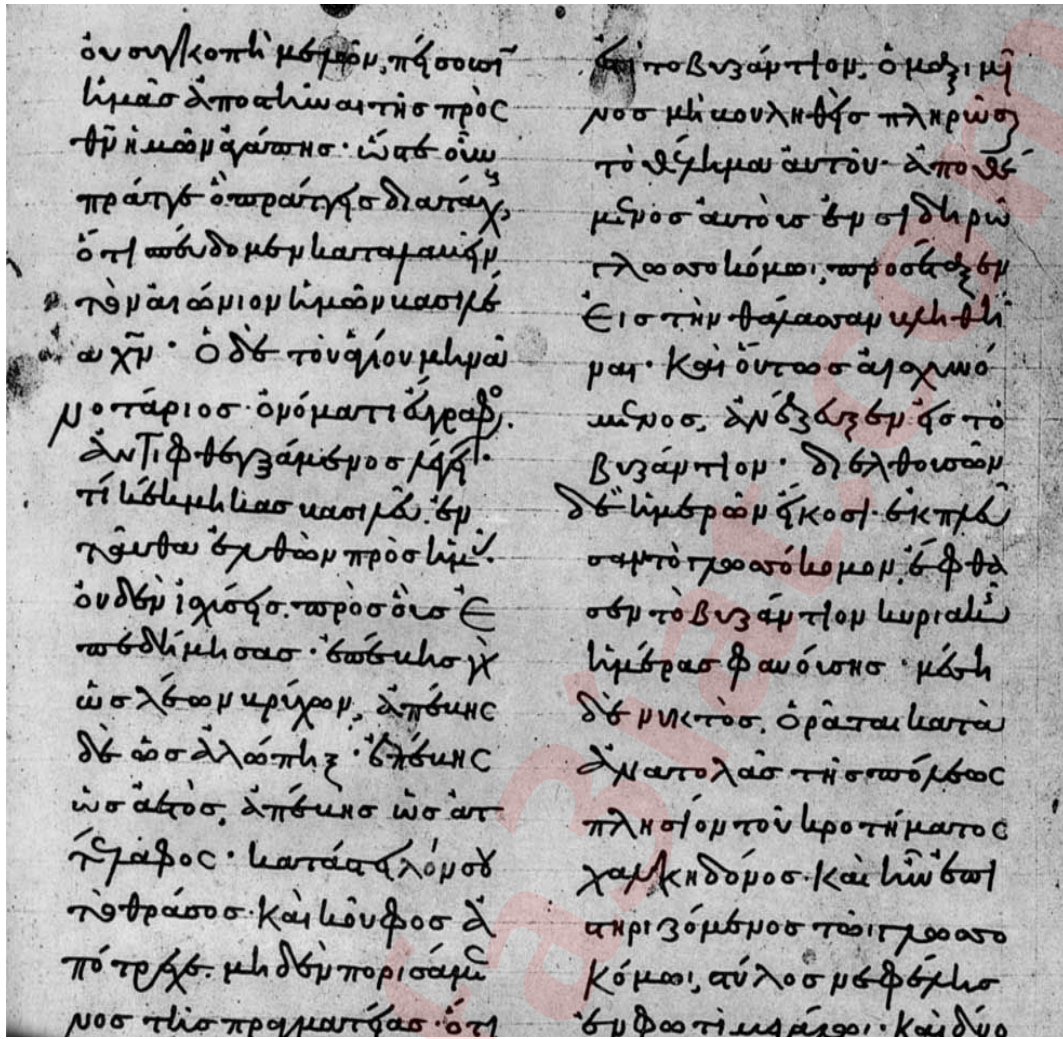 ὀυ συγκοπὴ μελῶν, πείσουσῖ
ἡμᾶσ ἀποστῆναι τῆσ πρὸς
θν̄ ἡμῶν ἀγάπησ· ὥστε οὖν
πράττε ὃ πράττεισ διὰ τάχ,
ὅτι σπέυδομεν καταλαβεῖν
τὸν αἰώνιον ἡμῶν βασιλέ
α χν̄· ὁ δὲ τοῦ
νοτάριοσ· ὀνόματι
ἀντιφθεγξάμενοσ λέγει·
τί βασιλεῦ, ἐν
ταῦθα ἐλθὼν πρὸσ ἡμᾶσ·
ὀυδὲν ἰσχύσεισ. πρὸσ ὁὺσ ἐ
πεδήμησασ· ἐπέβησ γὰρ
ὡσ λέων βρύχων, ἀπέβης
δὲ ὡσ ἀλώπηξ· ἐπέβης
ὡσ ἀετὸσ, ἀπέβησ ὡσ ἀτ
τέλαβος· κατάστειλόν σου
τὸ θράσοσ· καὶ κούφοσ ἀ
πότρεχε. μηδὲν πορισάμε
νοσ τῆσ πραγματείασ· ὅτι
ἐπὶ τὸ βυζάντιον, ὁ μαξιμῖ
νοσ μὴ βουληθεὶσ πληρῶσαι
τὸ θέλημα αὐτοῦ· ἀποθέ
μενοσ αὐτοὺσ ἐν σιδηρῶ
γλωσσοκόμωι, προσέταξεν
εἰσ τὴν θάλασσαν βληθῆ
ναι· καὶ ὅυτωσ ἀισχυνό
μενοσ, ἀνέζευξεν εἰσ τὸ
βυζάντιον· διελθουσῶν
δὲ ἡμερῶν εἴκοσι· ἐκπλεῦ
σαν τὸ γλωσσόκομον, ἔφθα
σεν τὸ βυζάντιον κυριακῆσ
ἡμέρασ φανούσησ· μέση
δὲ νυκτὸσ, ὁρᾶται κατὰ
ἀνατολὰσ τῆσ πόλεως
πλησίον τοῦ κροτήματος
χαλκηδόνοσ· καὶ ἦν ἐπι
στηριζόμενοσ τῶι γλωσσο
κόμωι, στύλοσ νεφέλησ
ἐν φωτὶ μεγάλωι· καὶ δύο